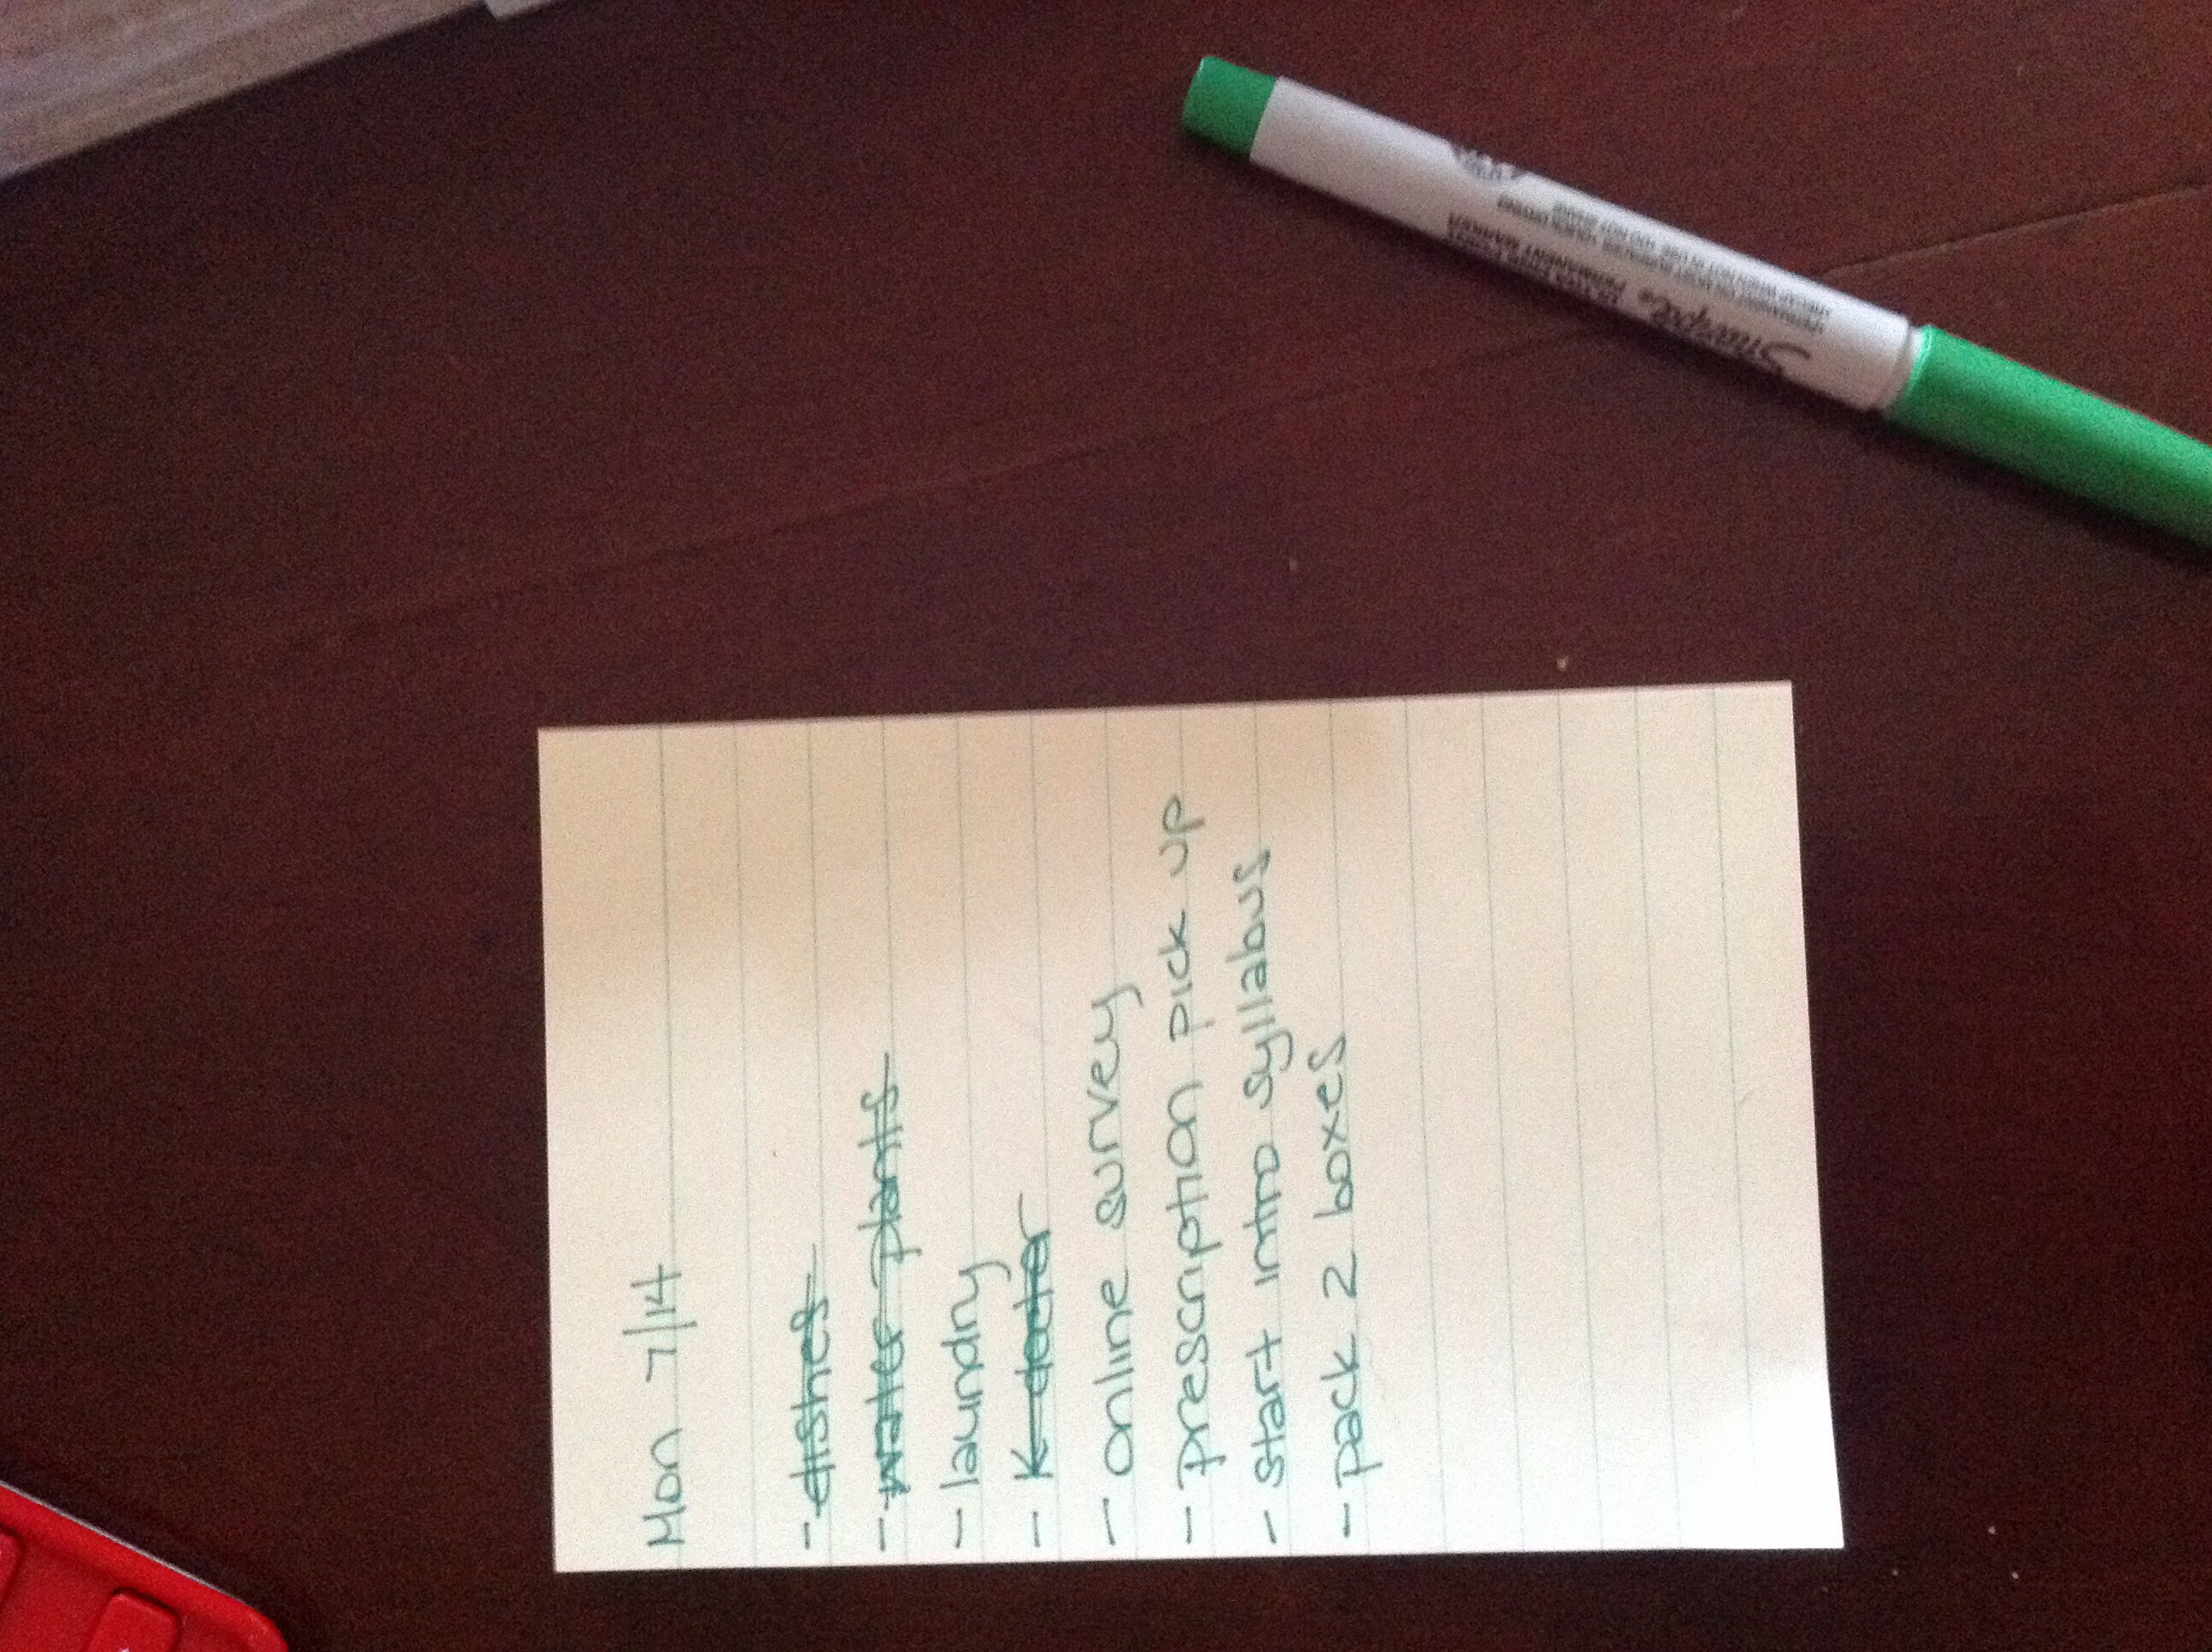 Mon 7/14
- dishes
- water plants
- laundry
- K doctor
- online survey
- prescription pick up
- start intro syllabus
- pack 2 boxes
Sharpie
PERMANENT MARKER